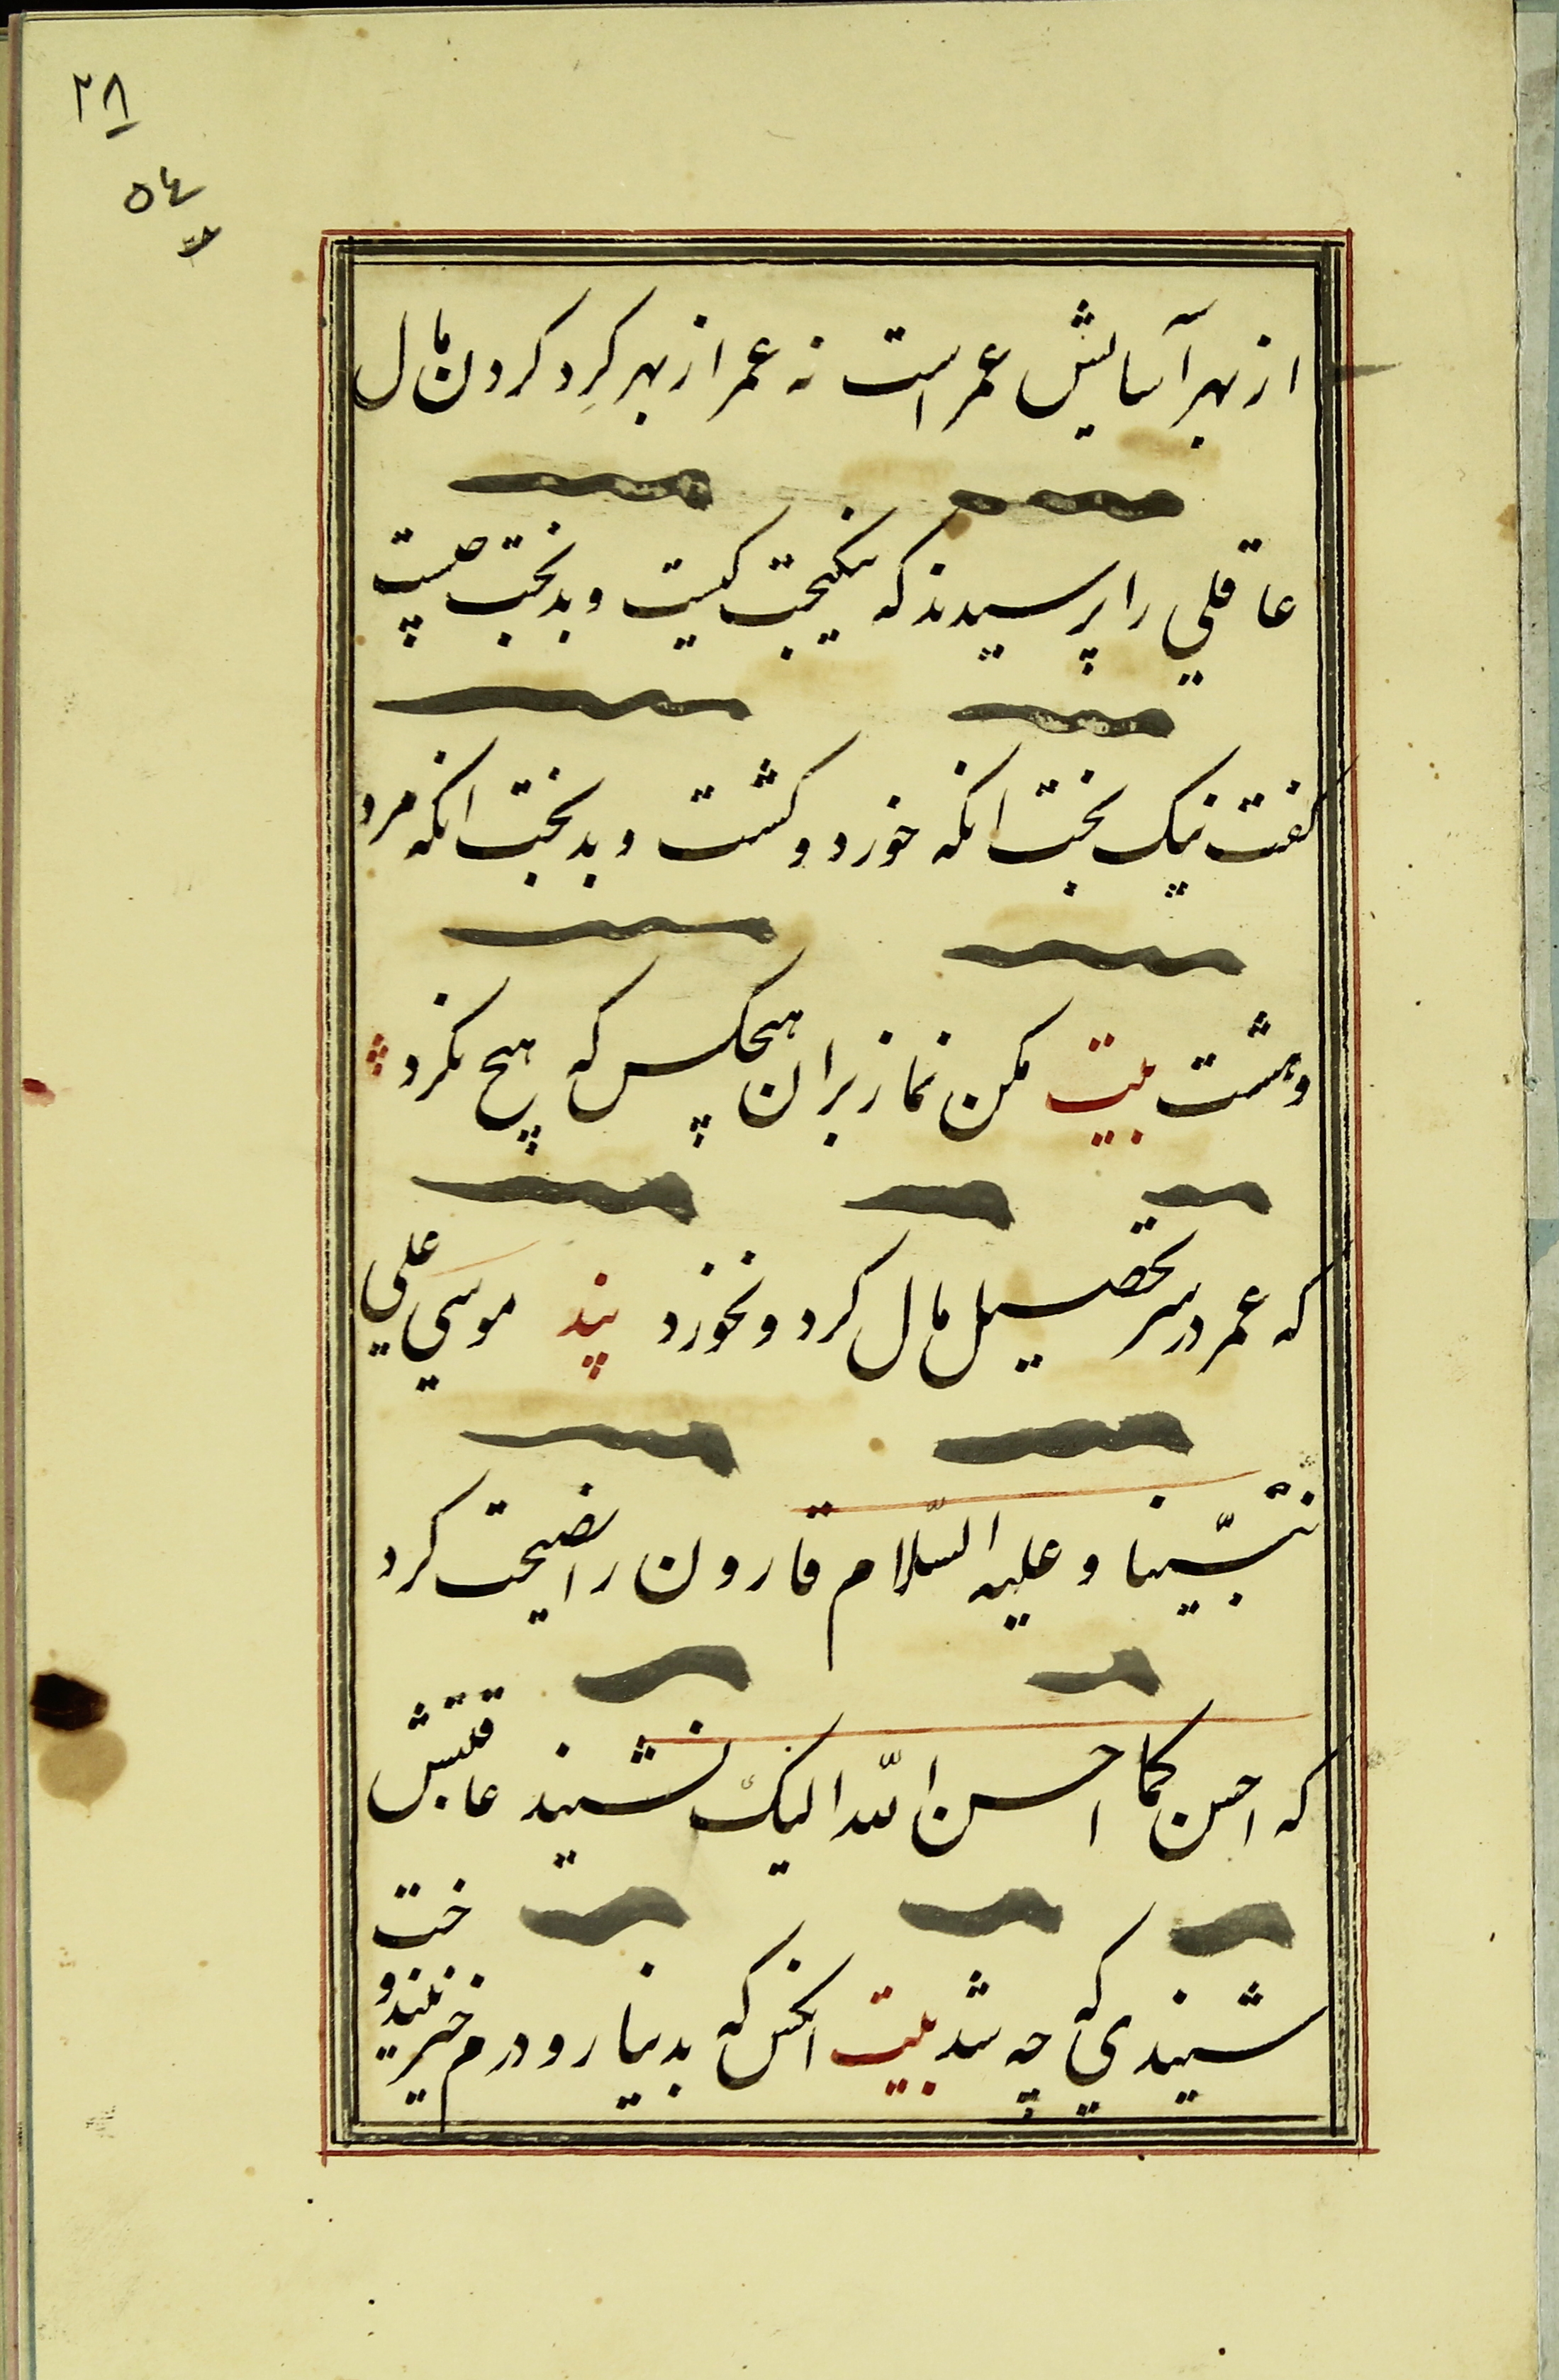 ٢٨
٥٤
از بهر آسایش عمر است نه عمر از بهر کِرد کردن مال
عاقلي را پرسیدند که نیکبخت کیست و بدبخت چیست
کفت نیک بخت انکه خورد و کشت و بدبخت انکه مرد
و هشت بیت مکن نماز بران هیچکس که هیچ نکرد
که عمر در سر تحصیل مال کرد و نخورد پند موسي علي
نبیّنا و علیه السّلام قارون را نصیحت کرد
که احسن کما احسن اللّه الیک نشنید عاقبتش
شنیدي که چه شد بیت انکس که بدینار و درم خیر نیندوخت